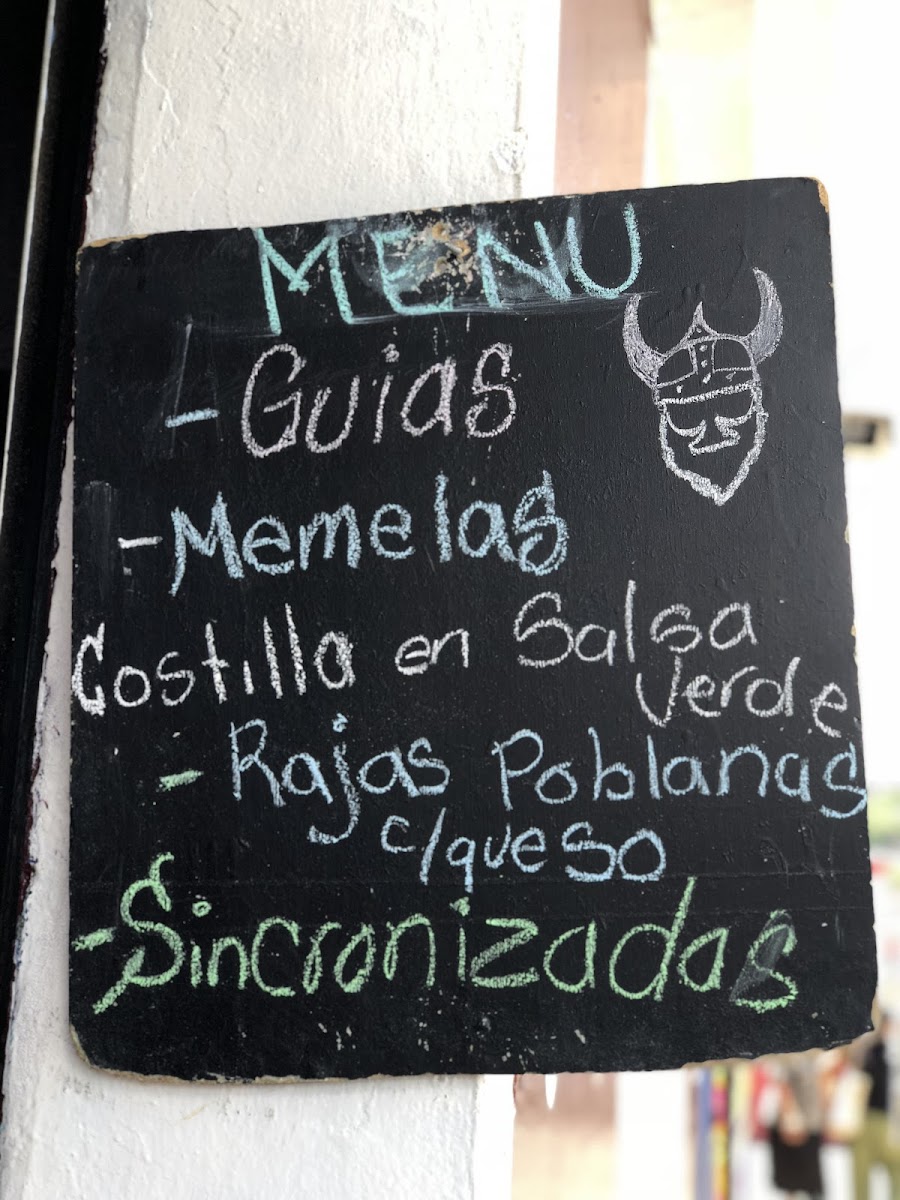 MENU
- Guias
- Memelas
Costilla en Salsa
Verde
- Rajas Poblanas
c/queso
- Sincronizadas